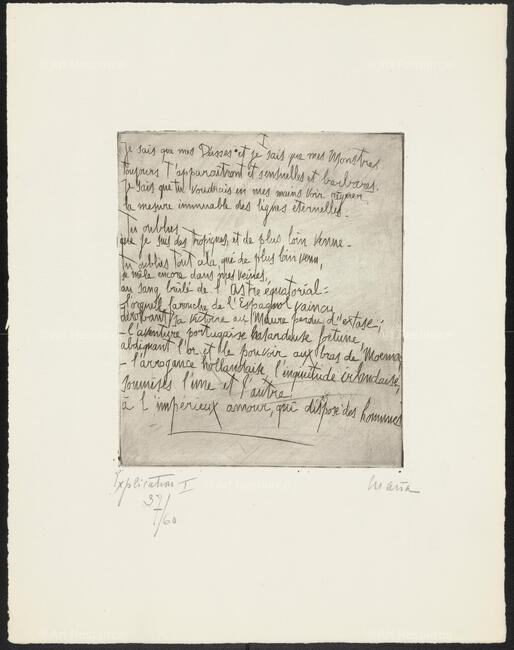 I
Je sais que mes Déesses et je sais que mes Monstres
toujours t'apparaîtront et sensuelles et barbares.
Je sais que tu voudrais en mes mains voir régner
la mesure immuable des lignes éternelles.
Tu oublies
que je suis des tropiques, et de plus loin venue.
Tu oublies tout cela, que de plus loin venu,
je mêle encore dans mes veines,
au sang brûlé de l'astre équatorial:
- l'orgueil farouche de l'Espagnol vaincu
dérobant sa victoire au Maure perdu d'extase;
- l'aventure portugaise hasardeuse fortune,
abdiquant l'or et le pouvoir aux bras de
- l'arrogance hollandaise, l'inquiétude irlandaise,
soumises l'une et l'autre
à l'impérieux amour, qui dispose des hommes
Explication I
37/60
Maria
© Art Resource